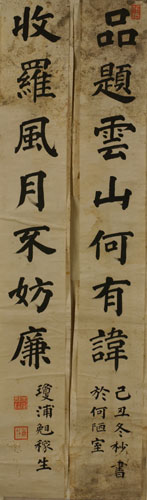 品題雲山何有諱
己丑冬杪書
於何陋室
收羅風月不妨廉
瓊浦勉稼生